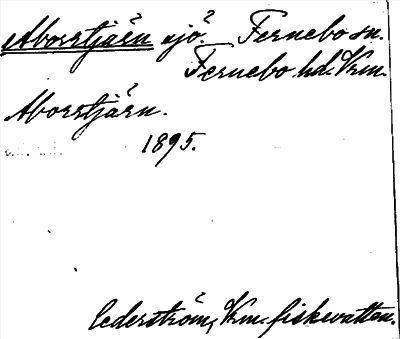 Aborrtjärn sjö? Fernebo sn.
Fernebo hd. Vrm.
Aborrtjärn.
1895.
Cederström, Vrm. fiskevatten.